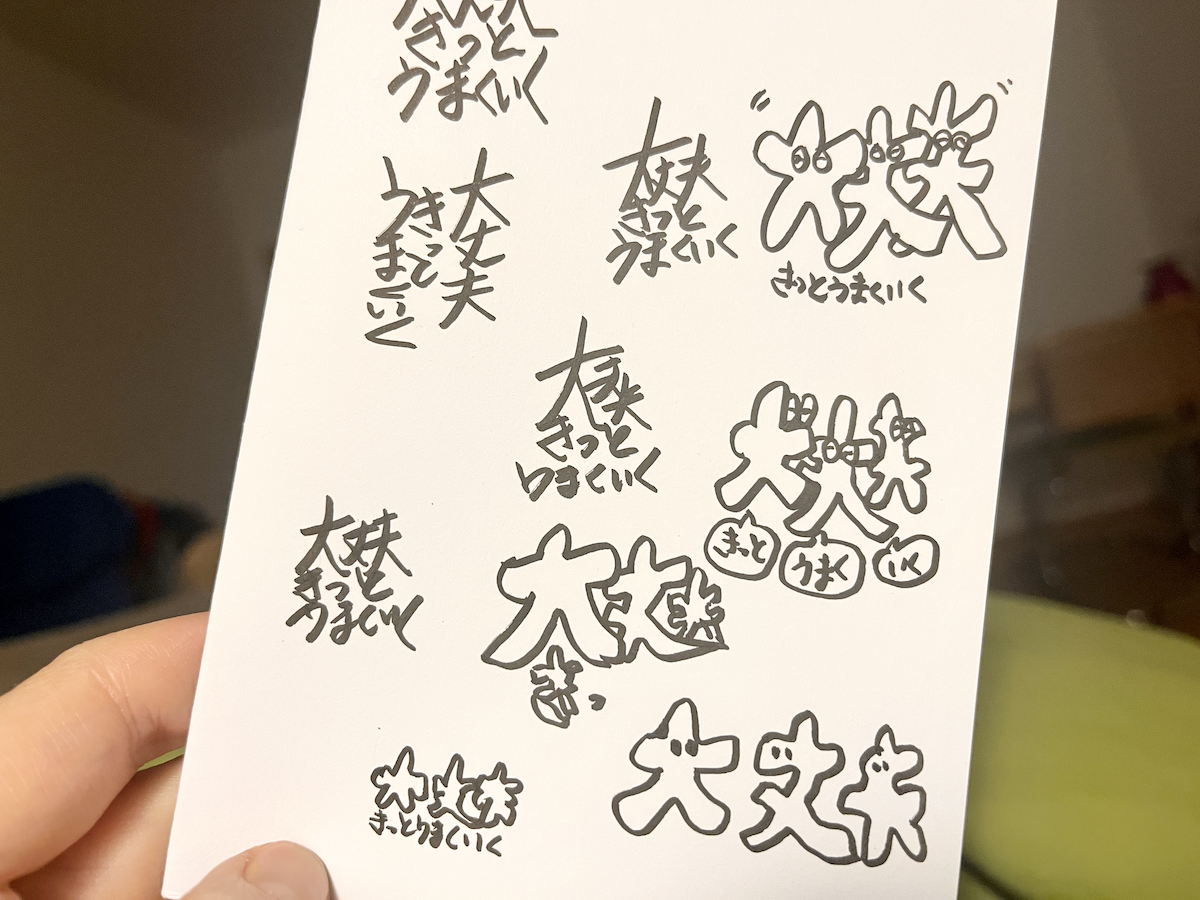 大丈夫
きっと
うまくいく
大丈夫
きっと
うまくいく
大丈夫
きっとうまくいく
大丈夫
きっと
うまくいく
大丈夫
きっと
うまくいく
大丈夫
きっと
うまく
いく
大丈夫
きっと
うまくいく
大丈夫
きっ
大丈夫
きっとうまくいく
大丈夫